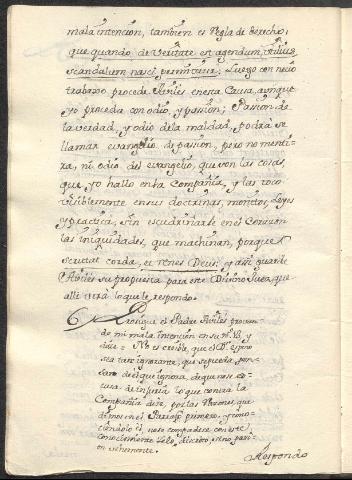 mala intencion, tambien es Regla de derecho,
que quando de veritate est agendum, utilius
scandalum nasci permititur; Luego con necio
trabajo procede Aviles en esta Causa, aunque
yo proceda con odio, y passion; Passion de
la verdad, y odio de la maldad, podrà se
llamar evangelio de passion, pero no menti-
ra, ni odio del evangelio, que son las cosas,
que yo hallo en la Compañia, y las toco
visiblemente en sus doctrinas, monitos, Leyes
y practica, sin escudriñarle en el Corazon
las iniquidades, que machinan, porque
scrutat corda, et renes Deus; y assi guarde
Aviles su propuesta para ese Divino Juez, que
alli verà lo que le respondo.
6 Prosigue el Padre Aviles provan-
do mi mala intencion en su n.
dice = No es creible, que el D. Espino
sea tan ignorante, que se pueda pen-
sar de el que ignora, de que no es co-
sa de injuria lo que contra la
Compañia dice, por las Razones, que
dimos en el Parrafo primero, y
el, no se compadece con este
conocimiento zelo discreto, sino passi-
on vehemente.
Respondo